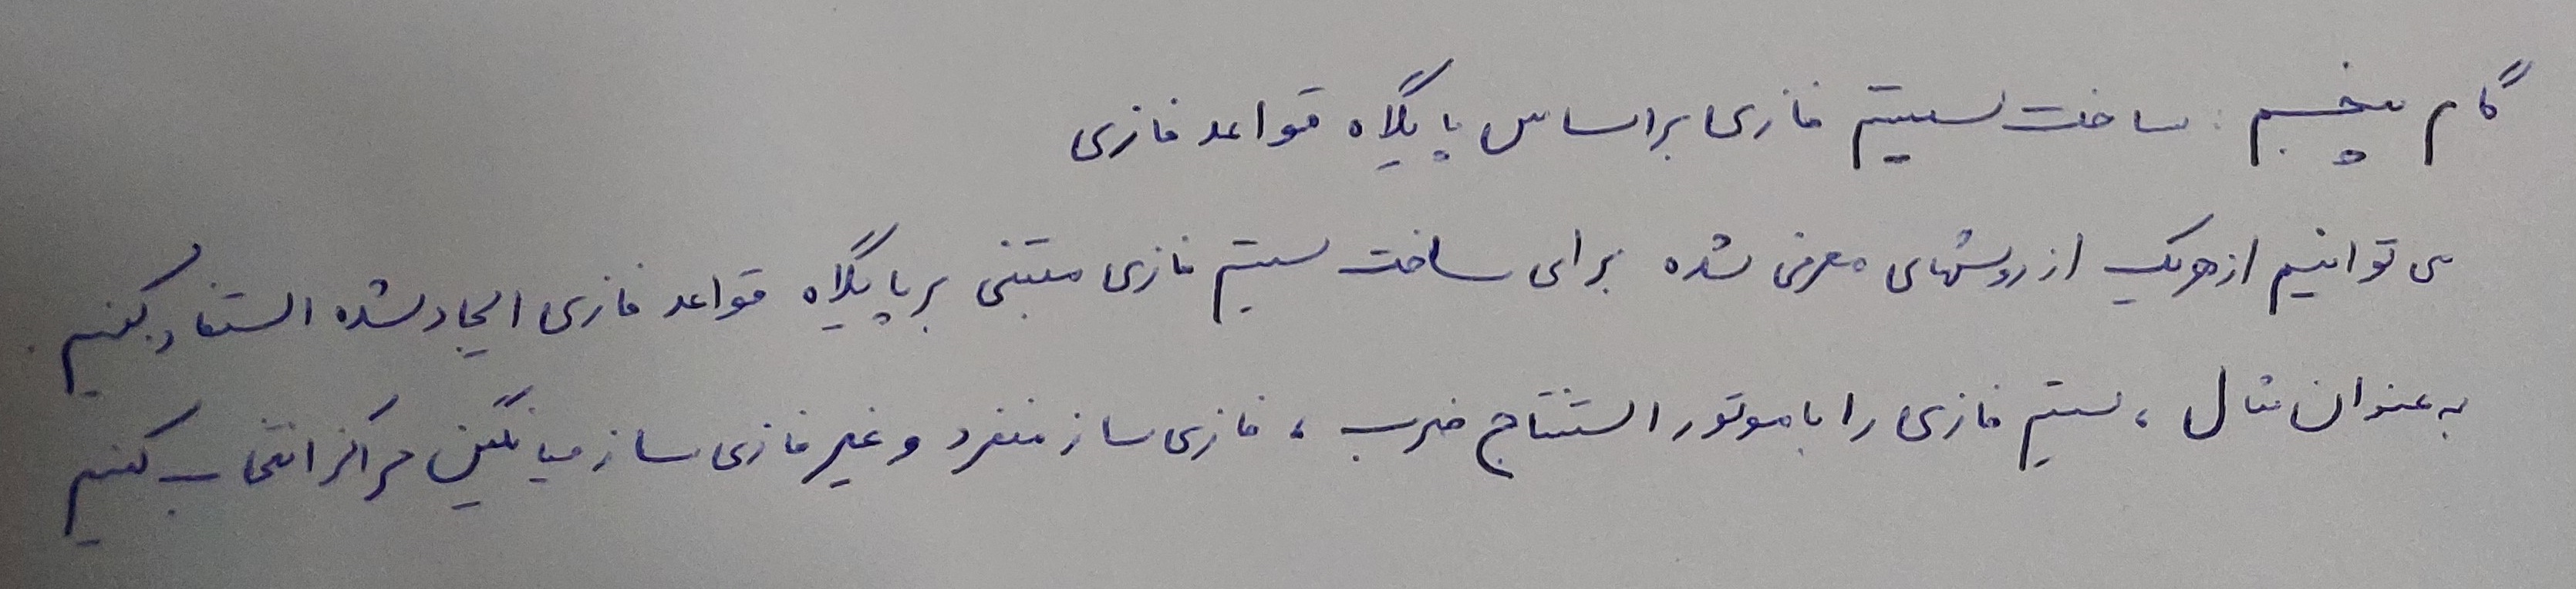 گام پنجم: ساخت سیستم فازی براساس پایگاه قواعد فازی
می توانیم از هریک از روشهای معرفی شده برای ساخت سیستم فازی مبتنی بر پایگاه قواعد فازی ایجاد شده استفاده کنیم.
به عنوان مثال، سیستم فازی را با موتور استنتاج ضرب، فازی ساز منفرد و غیر فازی ساز میانگین مراکز انتخاب کنیم